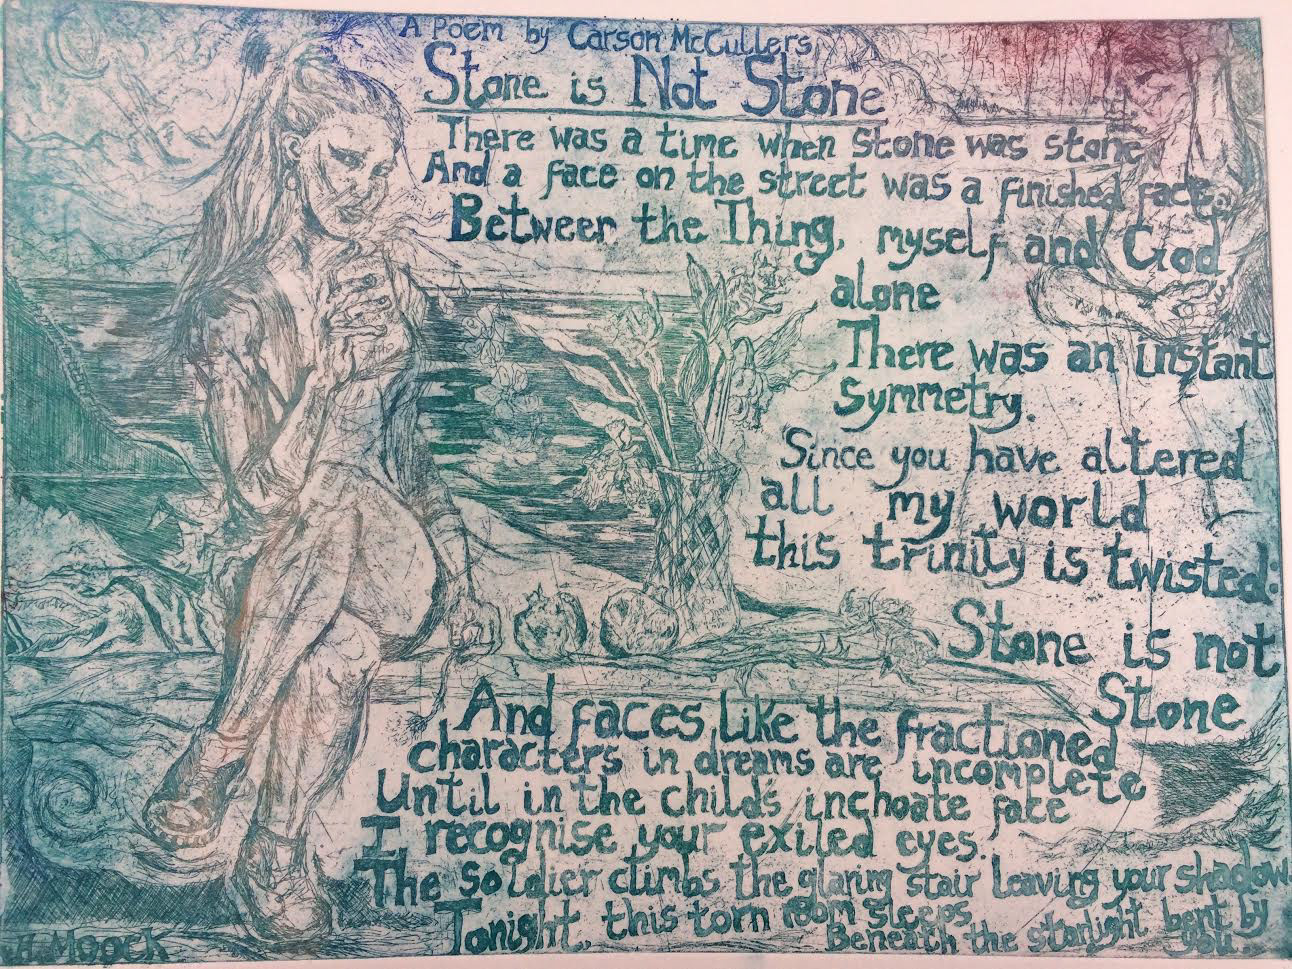 A Poem by Carson McCullers
Stone is Not Stone
There was a time when Stone was stone
And a face on the street was a finished face
Between the Thing, myself and God
alone
There was an instant
Symmetry.
Since you have altered
all my world
this trinity is twisted:
Stone is not
Stone
And faces like the fractioned
characters in dreams are incomplete
Until in the child's inchoate face
I recognise your exiled eyes.
The Soldier climbs the glaring stair leaving your shadow.
Tonight, this torn room sleeps
Beneath the starlight bent by
you.
H. Moock